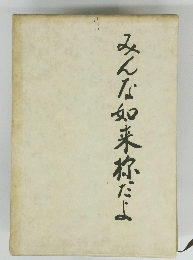 みんな如来様だよ